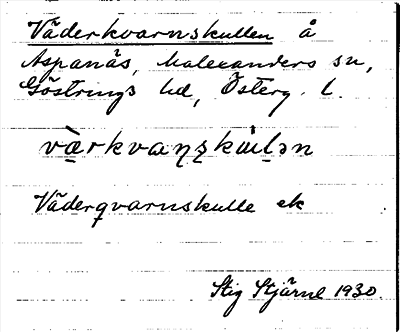 Väderkvarnskullen å
Aspanäs, Malexanders sn,
Göstrings hd, Österg. l.
væ̀rkvaɳʂku̇lən
Väderqvarnskulle ek
Stig Stjärne 1930.